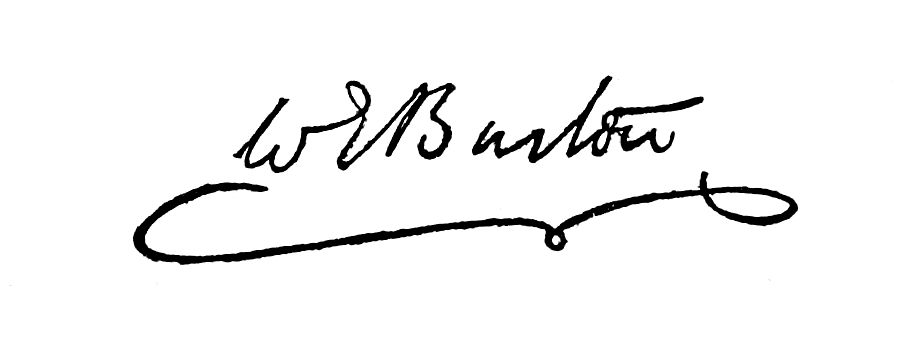 W E Burton